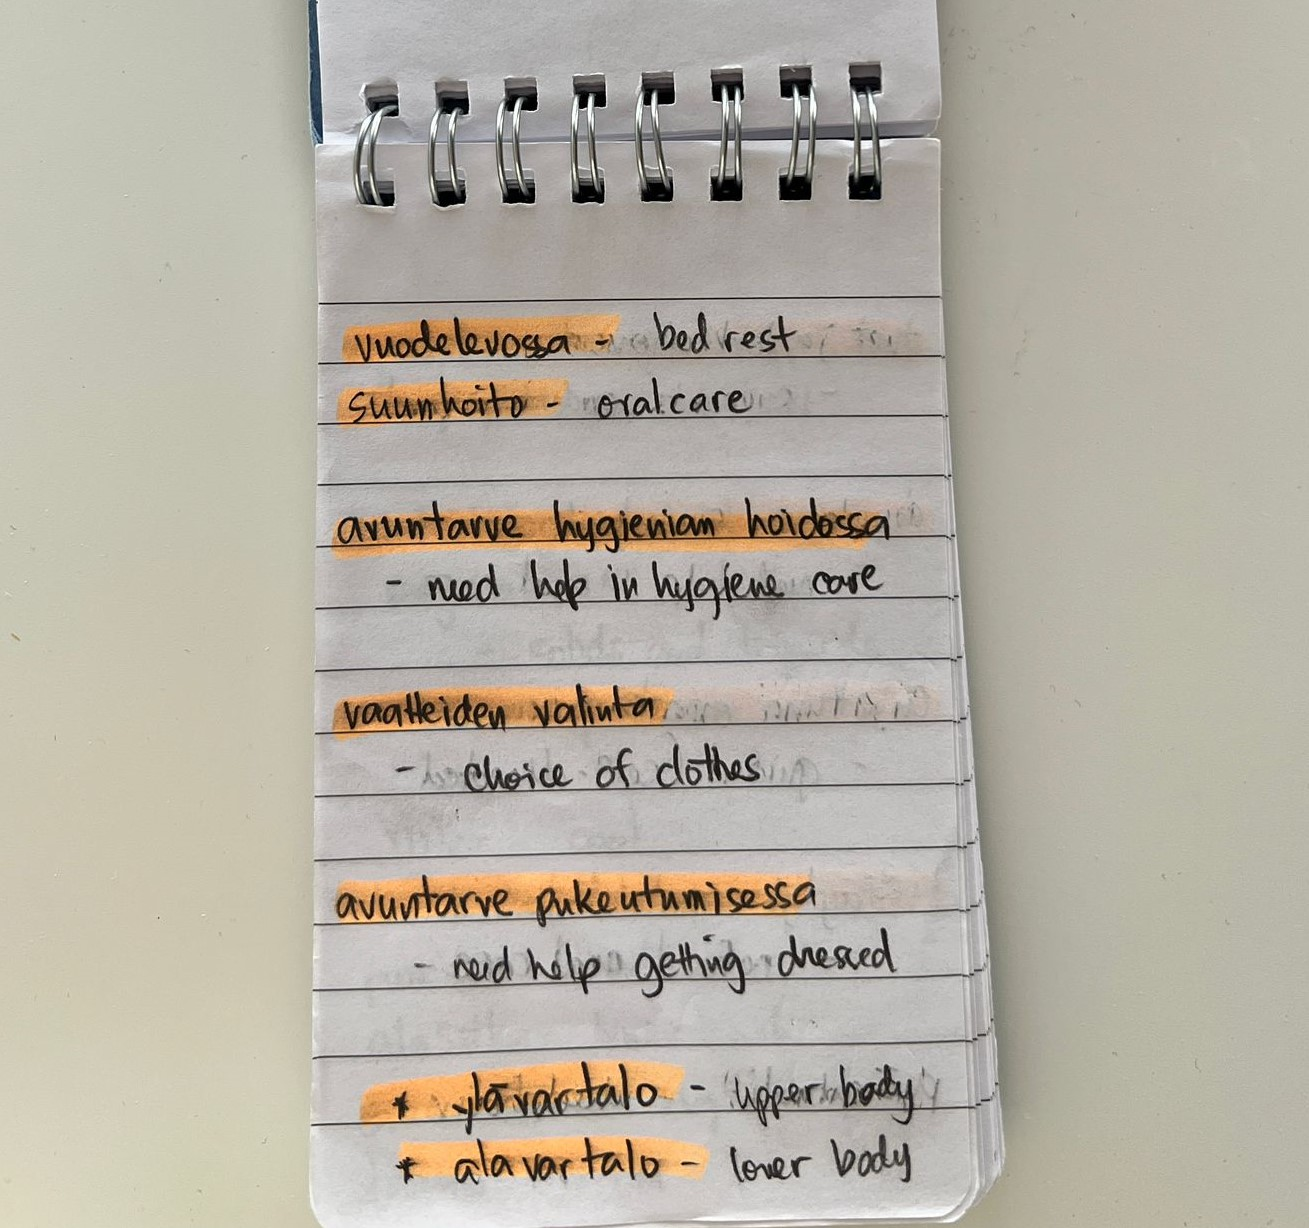 vuodelevossa - bed rest
suunhoito - oral care
avuntarve hygienian hoidossa
- need help in hygiene care
vaatteiden valinta
- choice of clothes
avuntarve pukeutumisessa
- need help getting dressed
* ylävartalo - upper body
* alavartalo - lower body